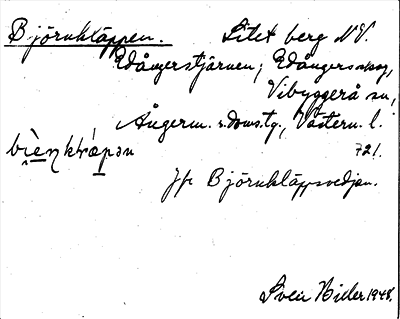 Björnkläppen. Litet berg NV.
Edångerstjärnen, Edångersskog,
Vibyggerå sn,
Ångerm. s. doms.tg., Västern. l.
bi̯èn̥kɫæ̀pən 721.
Jfr Björnkläppsvedjan.
Sven Hiller 1948.